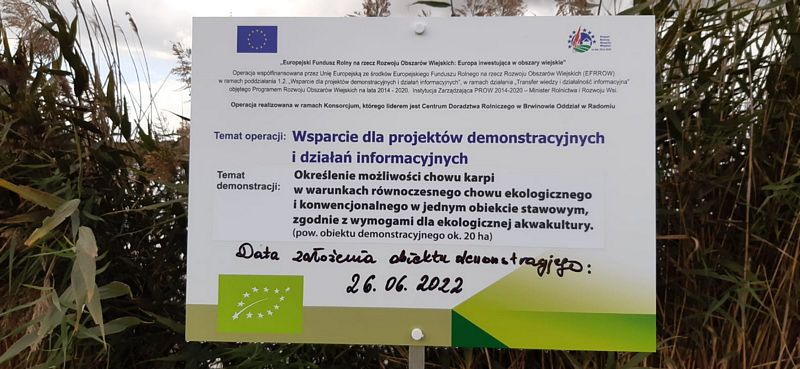 „Europejski Fundusz Rolny na rzecz Rozwoju Obszarów Wiejskich: Europa inwestująca w obszary wiejskie"
Operacja współfinansowana przez Unię Europejską ze środków Europejskiego Funduszu Rolnego na rzecz Rozwoju Obszarów Wiejskich (EFRROW)
w ramach poddziałania 1.2. „Wsparcie dla projektów demonstracyjnych i działań informacyjnych", w ramach działania „Transfer wiedzy i działalność informacyjna"
objętego Programem Rozwoju Obszarów Wiejskich na lata 2014 - 2020. Instytucja Zarządzająca PROW 2014-2020 – Minister Rolnictwa i Rozwoju Wsi.
Operacja realizowana w ramach Konsorcjum, którego liderem jest Centrum Doradztwa Rolniczego w Brwinowie Oddział w Radomiu
Temat operacji: Wsparcie dla projektów demonstracyjnych
i działań informacyjnych
Temat demonstracji: Określenie możliwości chowu karpi
w warunkach równoczesnego chowu ekologicznego
i konwencjonalnego w jednym obiekcie stawowym,
zgodnie z wymogami dla ekologicznej akwakultury.
(pow. obiektu demonstracyjnego ok. 20 ha)
Data założenia obiektu demonstracyjego:
26.06.2022